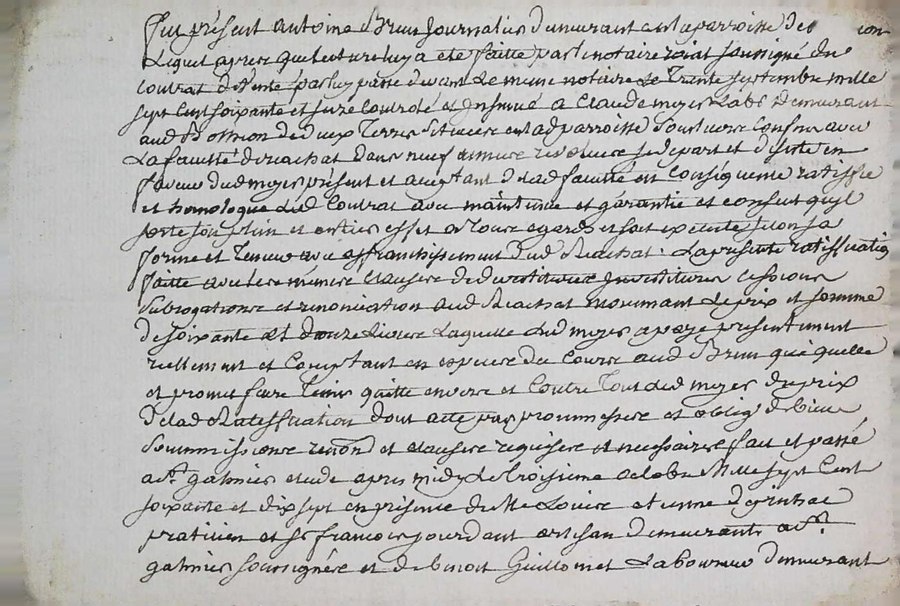 Fut présent Antoine Brun Journalier demeurant en la parroisse de ion
Lequel apres que lecture luy a eté faitte par le notaire soussigné du
contrat de vente par luy passé devant le meme notaire le trente septembre mille
sept cent soixante et seize controlé et Insinué a Claude moyer Labr demeurant
aud de deux Terres scituees en lad parroisse confins avec
La faculté de rachat dans neuf années revolues se depart et desiste en
faveur dud moyer présent et acceptant de lad faculté en conséquence ratiffie
et homologue led contrat avec maintenue et garantie et consent quil
sorte son plain et entier effet a tous egards et soit executé selon sa
forme et teneur avec affranchissement dud Reachat. La présente ratiffication
faitte avec les mémes clauses de devestitures Investitures cessions
subrogations et renonciation aud Reachat moyennant le prix et somme
de soixante et douze livres Laquelle led moyer a payé presentement
reellement et comptant en especes de cours aud Brun que quelle
et promet faire tenir quitte envers et contre tout led moyer du prix
de lad Ratiffication dont acte par promesses et oblig de biens
soummissions renon et clauses requises et necessaires fait et passé
a St galmier etude apres midy Le troisieme octobre Mille sept cent
soixante et dix sept en présence de Me Louis etienne
praticien et Sr francois jourdant artisan demeurants a St
galmier soussignés et de benoit Guillomet Laboureur demeurant